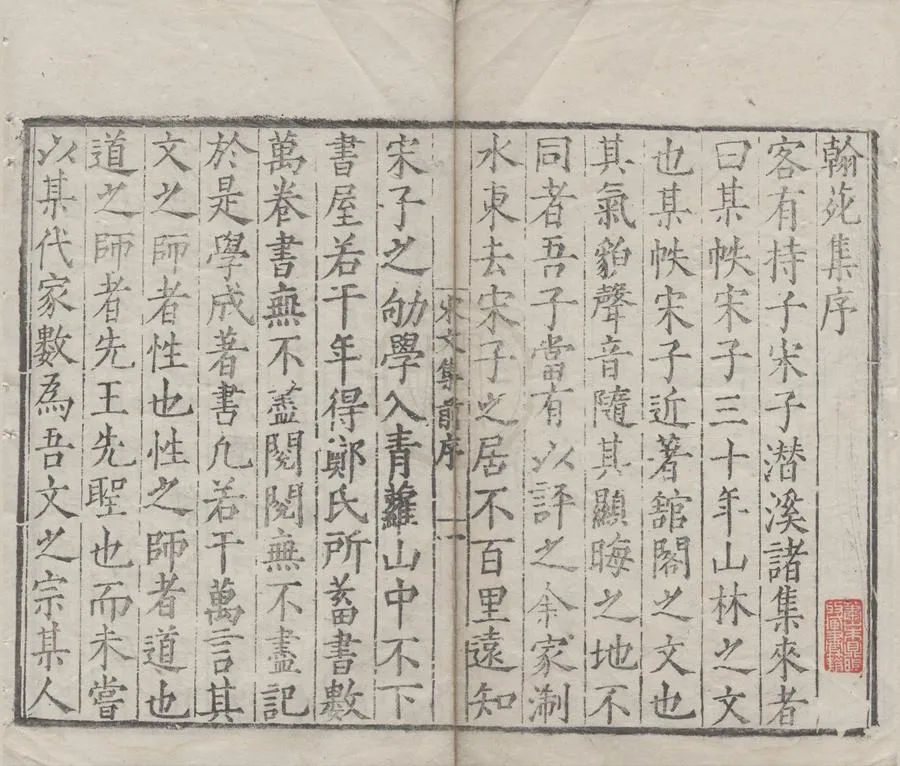 翰苑集序
客有持子宋子潛溪諸集來者
曰某帙宋子三十年山林之文
也某帙宋子近著舘閣之文也
其氣貌聲音隨其顯晦之地不
同者吾子當有以評之余家淛
水東去宋子之居不百里遠知
宋文集前序
二
宋子之劬學入青蘿山中不下
書屋若干年得鄭氏所蓄書數
萬卷書無不盡閱閱無不盡記
於是學成著書凢若干萬言其
文之師者性也性之師者道也
道之師者先王先聖也而未嘗
以某代家數爲吾文之宗某人